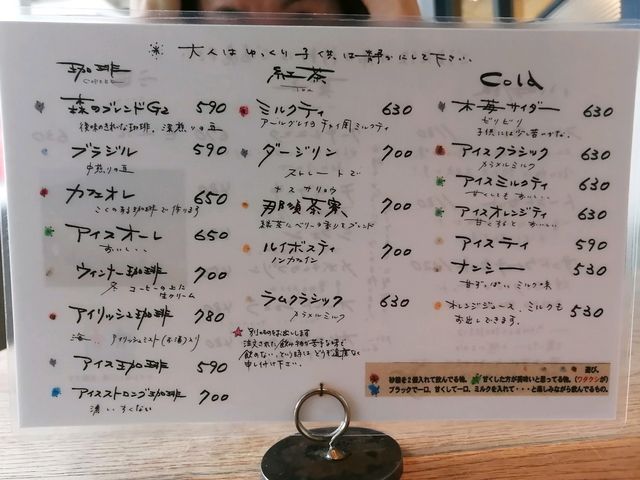 大人はゆっくり子供は静かにして下さい。
珈琲
COFFEE
森のブレンドG2 590
後味のきれいな珈琲。深煎りの豆
ブラジル 590
中煎りの豆
カフェオレ 650
こくのある珈琲で作ります
アイスオーレ 650
おいしい、
ウィンナー珈琲 700
冬 コーヒーの上に
生クリーム
アイリッシュ珈琲 780
アイリッシュミスト(お酒)入り
アイス珈琲 590
アイスストロング珈琲 700
濃い、すくない
紅茶
TEA
ミルクティ 630
アールグレイ
ダージリン 700
ストレートで
ナスサリョウ
那須茶寮 700
紅茶にベリーの香りをブレンド
ルイボスティ 700
ノンカフェイン
ラムクラシック 630
カラメルミルク
別のものをお出しします
注文された飲み物が苦手な味で
飲めない、という時は、どうぞ遠慮なく
申し付け下さい。
Cold
木苺サイダー 630
ピリピリ
子供には少し苦いかな。
アイスクラシック 630
カラメルミルク
アイスミルクティ 630
甘くしても おいしい
アイスオレンジティ 630
甘くすると おいしい
アイスティ 590
ナンシー 530
甘ずっぱい ミルク味
オレンジジュース、ミルクも 530
お出しできます。
遊び。
砂糖を2個入れて飲んでる物。甘くした方が美味いと思ってる物。(ワタクシが)
ブラックで一口、甘くして一口、ミルクを入れて・・・と楽しみながら飲んでるもの。